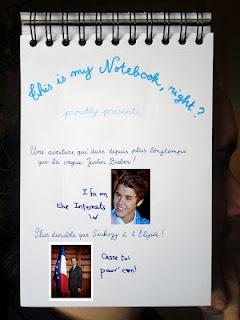 This is my Notebook, right?
proudly presents
Une aventure qui dure depuis plus longtemps
que la vague Justin Bieber!
I'm on
the Internets
\o/
Plus durable que Sarkozy à l'Élysée!
Casse toi
pauv' con!